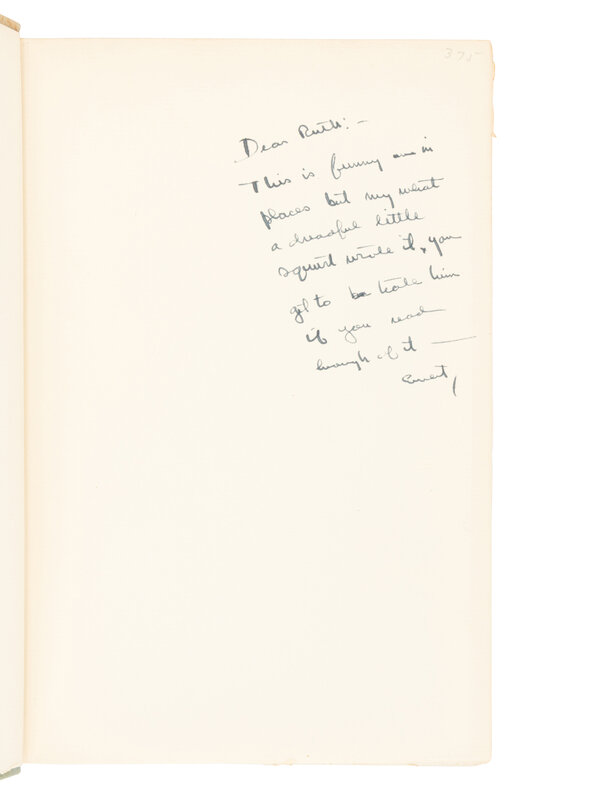 375
Dear Ruth: —
This is funny in
places but my what
a dreadful little
squirt wrote it, you
get to hate him
if you read
enough of it —
Ernest